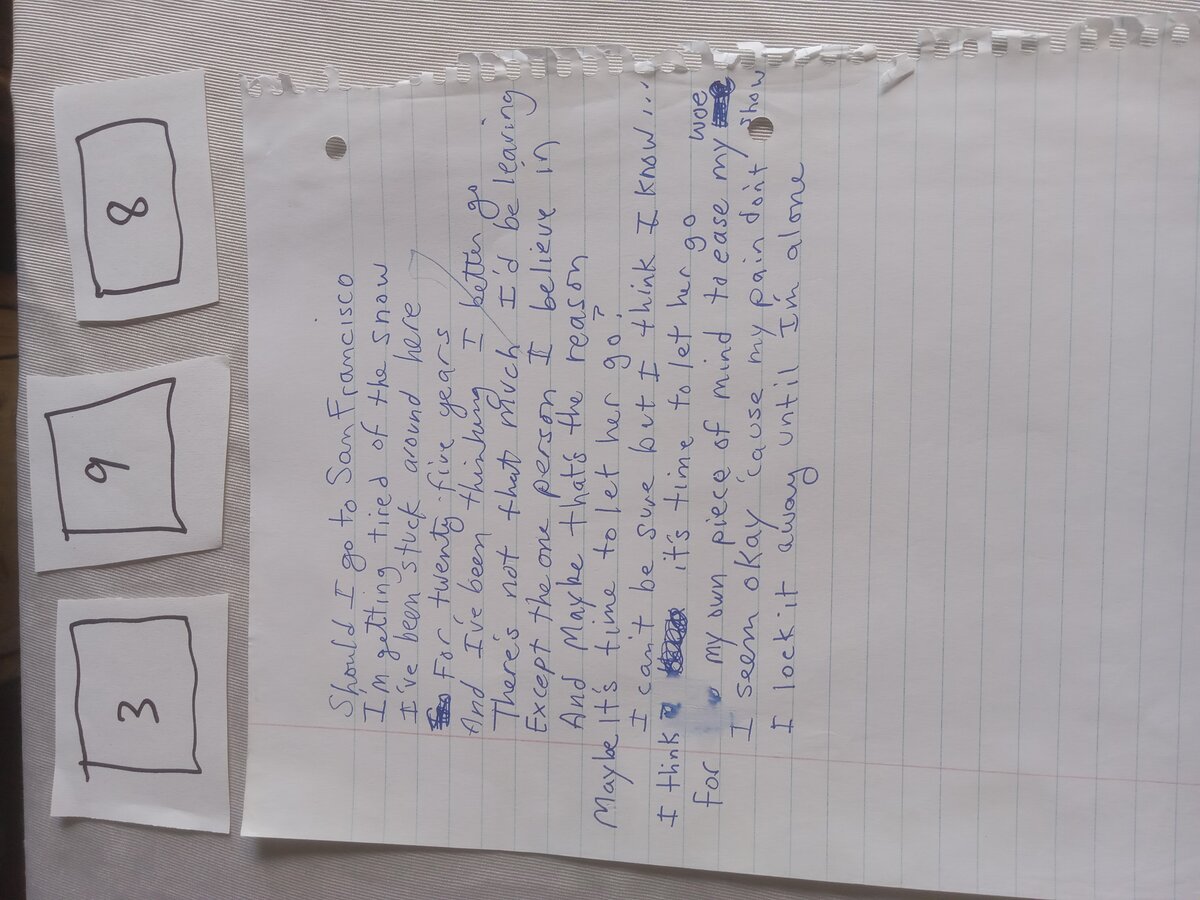 3 9 8
Should I go to San Francisco
I'm getting tired of the snow
I've been stuck around here
For twenty-five years
And I've been thinking I better go
There's not that much I'd be leaving
Except the one person I believe in
And Maybe that's the reason
Maybe It's time to let her go?
I can't be sure but I think I know...
I think it's time to let her go
for my own piece of mind to ease my woe
I seem okay 'cause my pain don't show
I lock it away until I'm alone